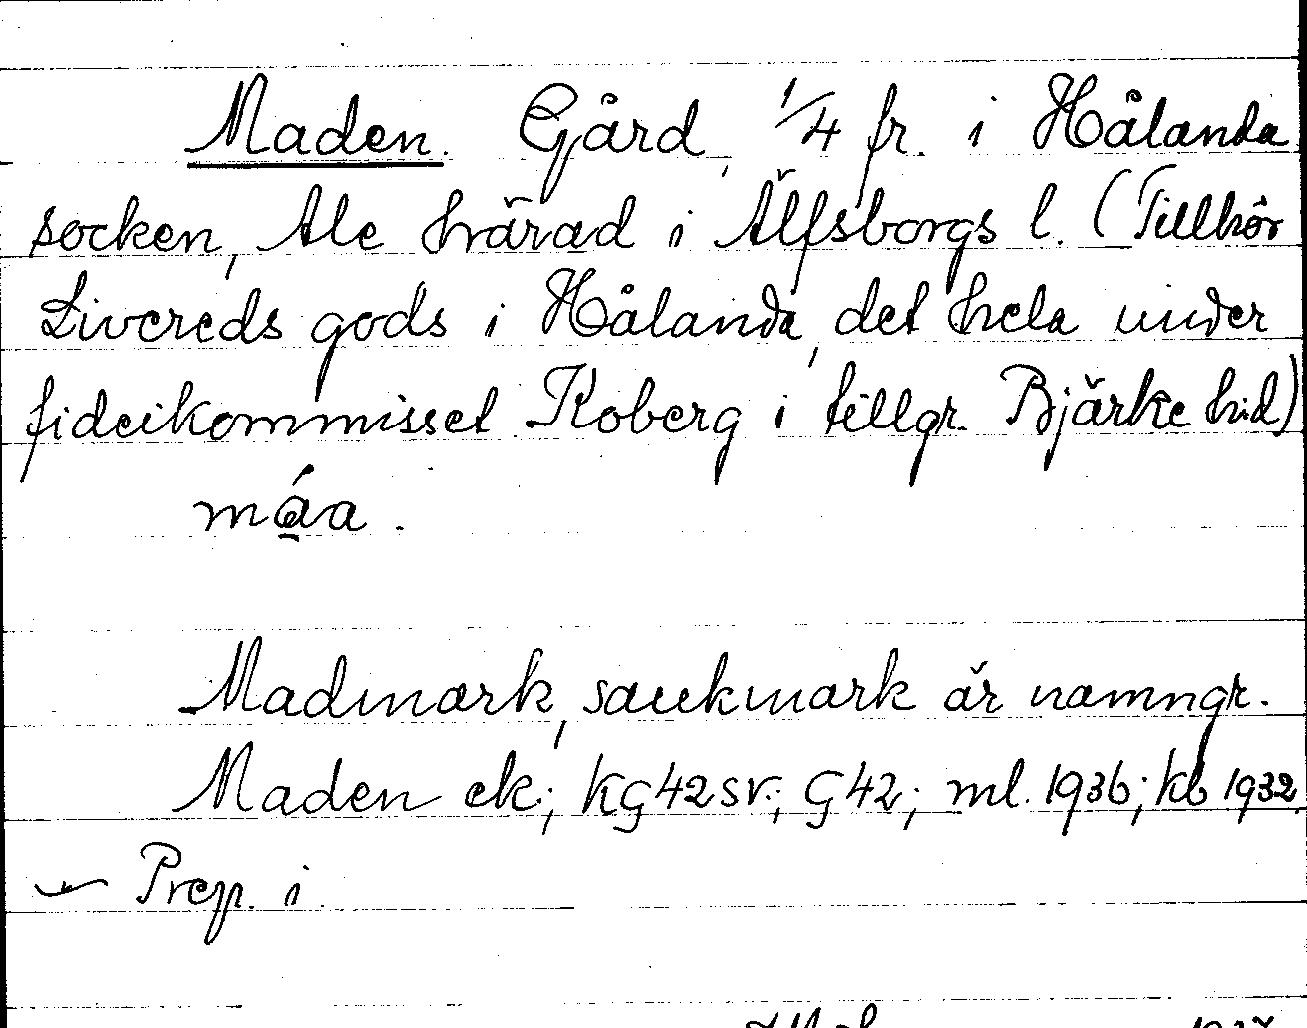 Maden. Gård, 1/4 fr. i Hålanda
socken, Ale härad i Älfsborgs l. (Tillhör
Livereds gods i Hålanda, det hela under
fideikommisset Koberg i tillgr. Bjärke hd)
máa.
Madmark, sankmark är namngr.
Maden ek; KG42SV; G42; ml. 1936; kb 1932.
Prep. i